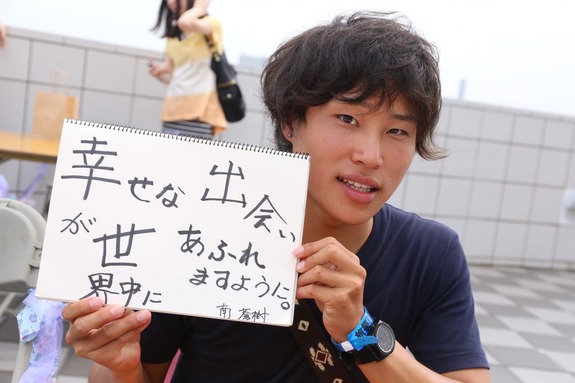 幸せな出会い
が世界中に
あふれ
ますように。
南 蒼樹